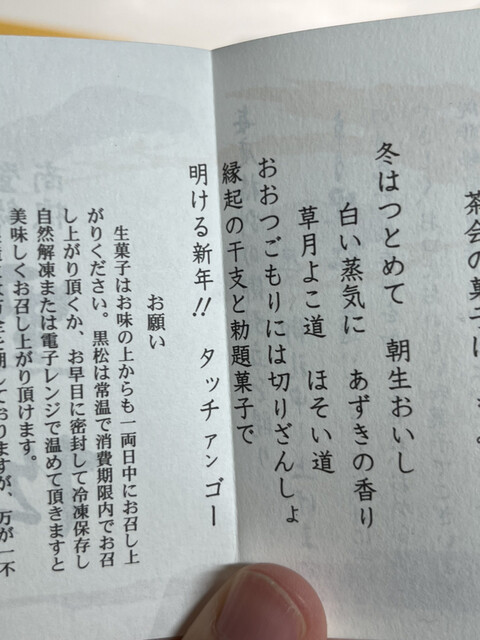 茶会の菓子に
冬はつとめて　朝生おいし
白い蒸気に　あずきの香り
草月よこ道　ほそい道
おおつごもりには切りざんしょ
縁起の干支と勅題菓子で
明ける新年!!　タッチァンゴー
お願い
生菓子はお味の上からも一両日中にお召し上
がりください。黒松は常温で消費期限内でお召
し上がり頂くか、お早目に密封して冷凍保存し
自然解凍または電子レンジで温めて頂きますと
美味しくお召し上がり頂けます。
万全を期しておりますが、万が一不